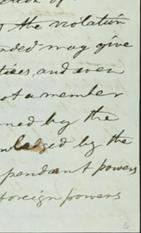 the violation
nded may give
ties, and even
ot a member
ned by the
by the
pendant powers
foreign powers